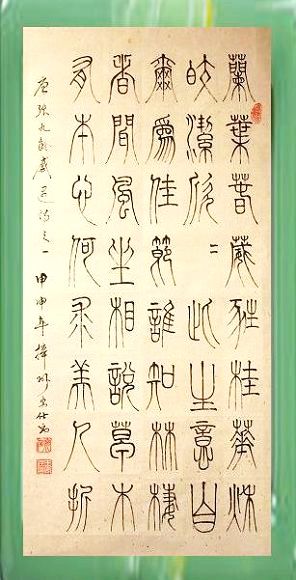 蘭葉春葳蕤桂華秋
皎潔欣〻此生意自
爾爲佳節誰知林棲
者聞風坐相說草木
有本心何求美人折
唐張九齡感遇詩之一 甲申年